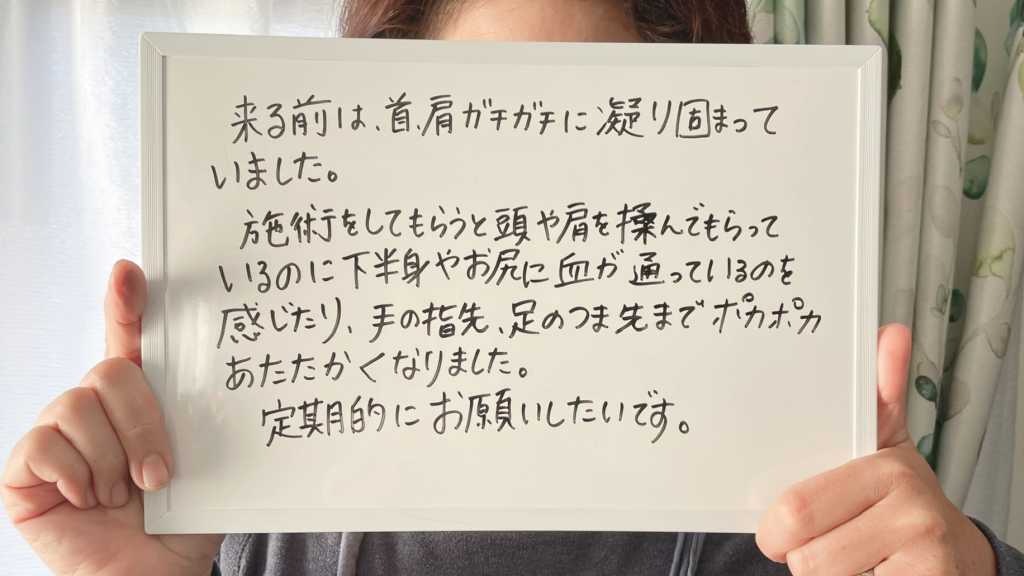 来る前は、首、肩ガチガチに凝り固まって
いました。
施術をしてもらうと頭や肩を揉んでもらって
いるのに下半身やお尻に血が通っているのを
感じたり、手の指先、足のつま先までポカポカ
あたたかくなりました。
定期的にお願いしたいです。